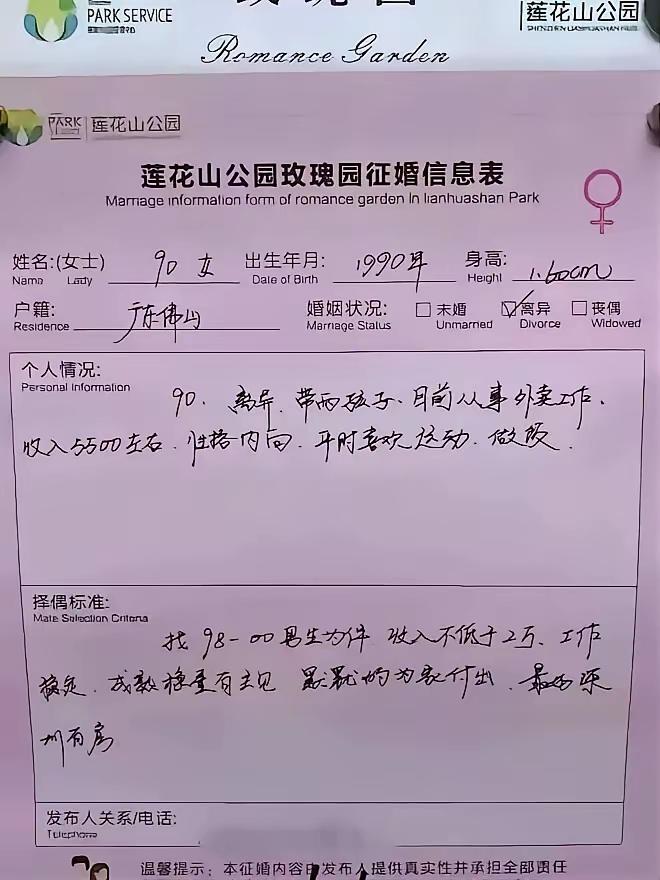 PARK SERVICE
莲花山公园
Romance Garden
PARK 莲花山公园
莲花山公园玫瑰园征婚信息表
Marriage information form of romance garden in lianhuashan Park
姓名:(女士) 90 女 出生年月: 1990年 身高: 1.60cm
Name Lady Date of Birth Height
户籍: 广东佛山 婚姻状况: 未婚 离异 丧偶
Residence Marriage Status Unmarned Divorce Widowed
个人情况:
Personal Information
90. 离异. 带两孩子. 目前从事外卖工作.
收入5500左右. 性格内向. 平时喜欢运动. 做饭.
择偶标准:
Mate Selection Criteria
找98-00男生为伴 收入不低于2万. 工作
稳定. 成熟稳重有主见 默默的为家付出. 最好深
圳有房
发布人关系/电话:
Telephone
温馨提示：本征婚内容由发布人提供真实性并承担全部责任